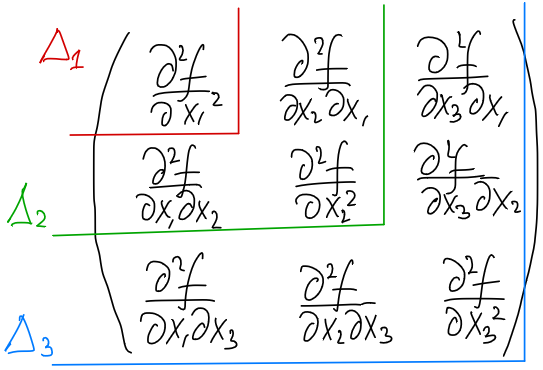 Δ₁ ∂²f/∂x₁² ∂²f/∂x₂∂x₁ ∂²f/∂x₃∂x₁
∂²f/∂x₁∂x₂ ∂²f/∂x₂² ∂²f/∂x₃∂x₂
Δ₂
∂²f/∂x₁∂x₃ ∂²f/∂x₂∂x₃ ∂²f/∂x₃²
Δ₃